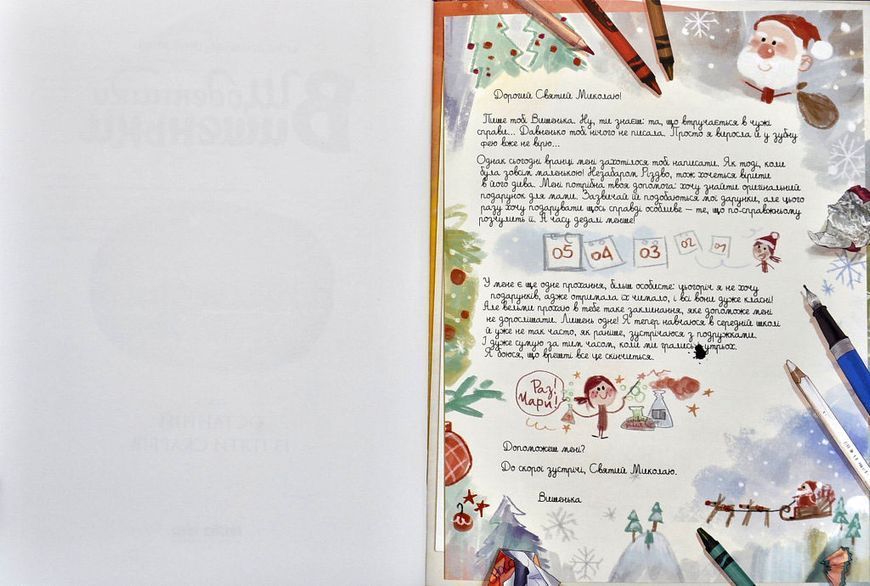 Дорогий Святий Миколаю!
Пише тобі Вишенька. Ну, ти знаєш: та, що втручається в чужі
справи... Давненько тобі нічого не писала. Просто я виросла й у зубну
фею вже не вірю...
Однак сьогодні вранці мені захотілося тобі написати. Як тоді, коли
була зовсім маленькою! Незабаром Різдво, тож хочеться вірити
в його дива. Мені потрібна твоя допомога: хочу знайти оригінальний
подарунок для мами. Зазвичай їй подобаються мої дарунки, але цього
разу хочу подарувати щось справді особливе – те, що по-справжньому
розчулить її. А часу дедалі менше!
05 04 03 02 01
У мене є ще одне прохання, більш особисте: цьогоріч я не хочу
подарунків, адже отримала їх чимало, і всі вони дуже класні!
Але вельми прохаю в тебе таке заклинання, яке допоможе мені
не дорослішати. Лишень одне! Я тепер навчаюся в середній школі
й уже не так часто, як раніше, зустрічаюся з подружками.
І дуже сумую за тим часом, коли ми грались утрьох.
Я боюся, що врешті все це скінчиться.
Раз!
Чари!
Допоможеш мені?
До скорої зустрічі, Святий Миколаю.
Вишенька